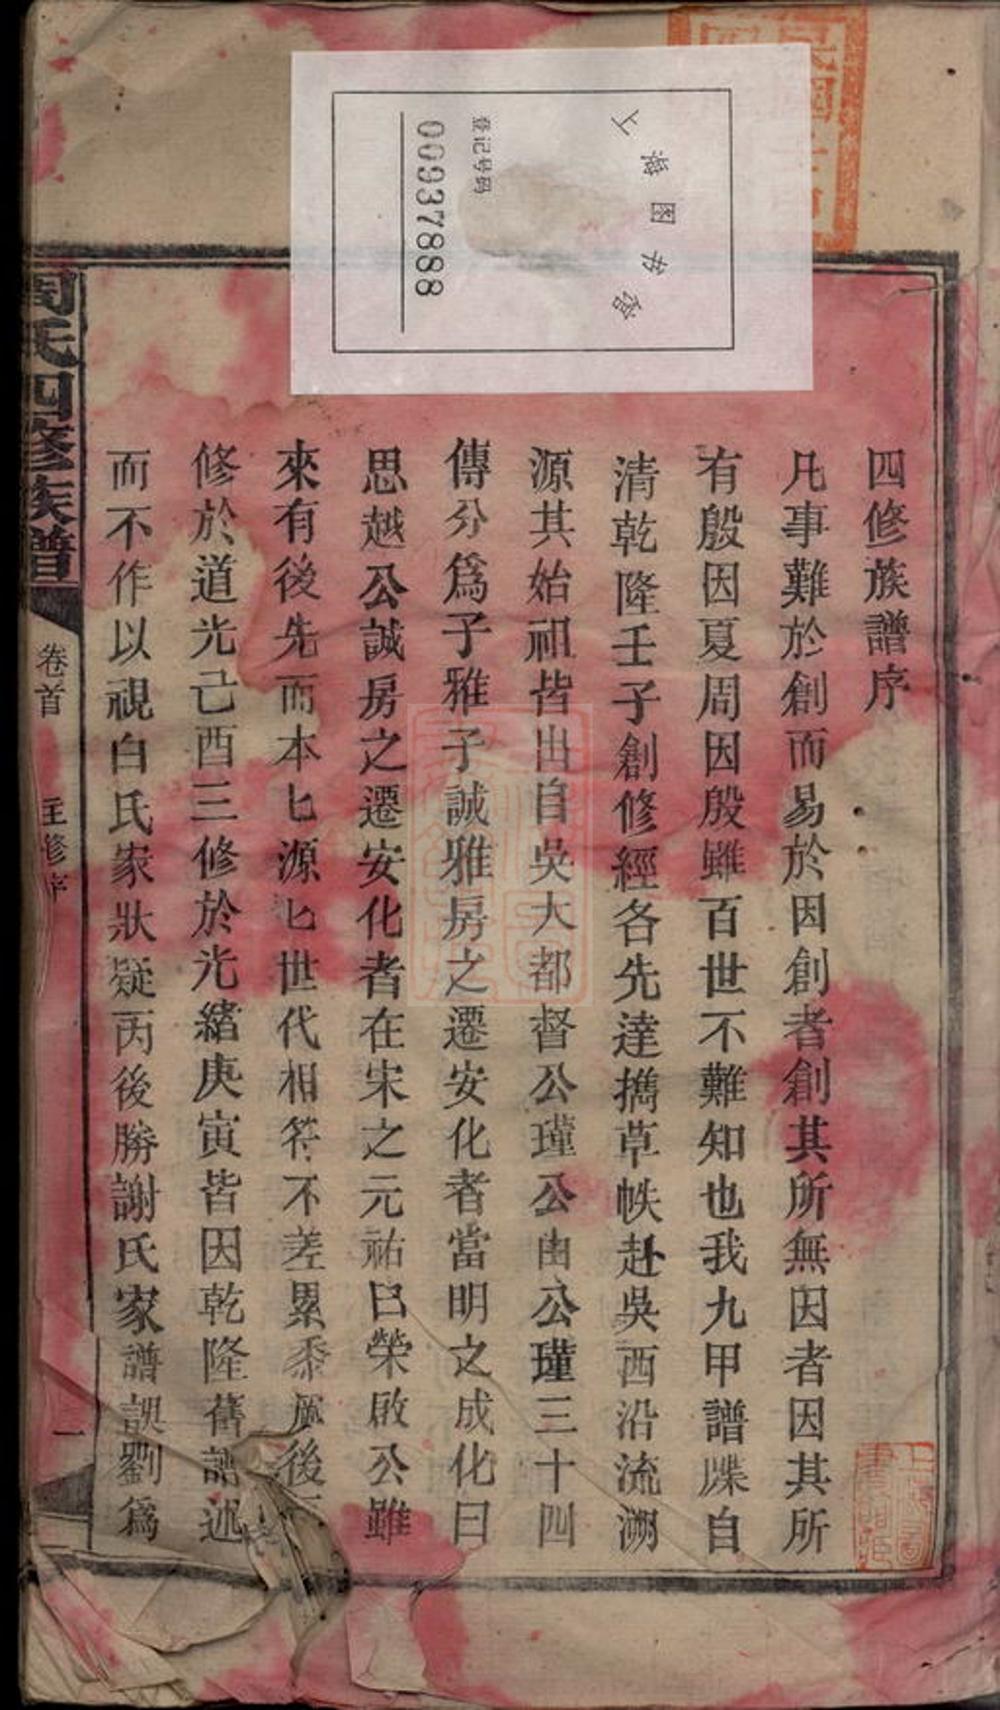 上海图书馆
登记号码
00937888
四修族譜序
凡事難於創而易於因創者創其所無因者因其所
有殷因夏周因殷雖百世不難知也我九甲譜牒自
清乾隆壬子創修經各先達攜草帙赴吳西沿流溯
源其始祖皆出自吳大都督公瑾公由公瑾三十四
傳分爲子雅子誠雅房之遷安化者當明之成化曰
思越公誠房之遷安化者在宋之元祐曰榮啟公雖
來有後先而本匕源匕世代相符不差累黍厥後
修於道光己酉三修於光緒庚寅皆因乾隆舊譜述
而不作以視白氏家狀疑丙後勝謝氏家譜誤劉爲
周氏四修族譜
卷首
主修序
一